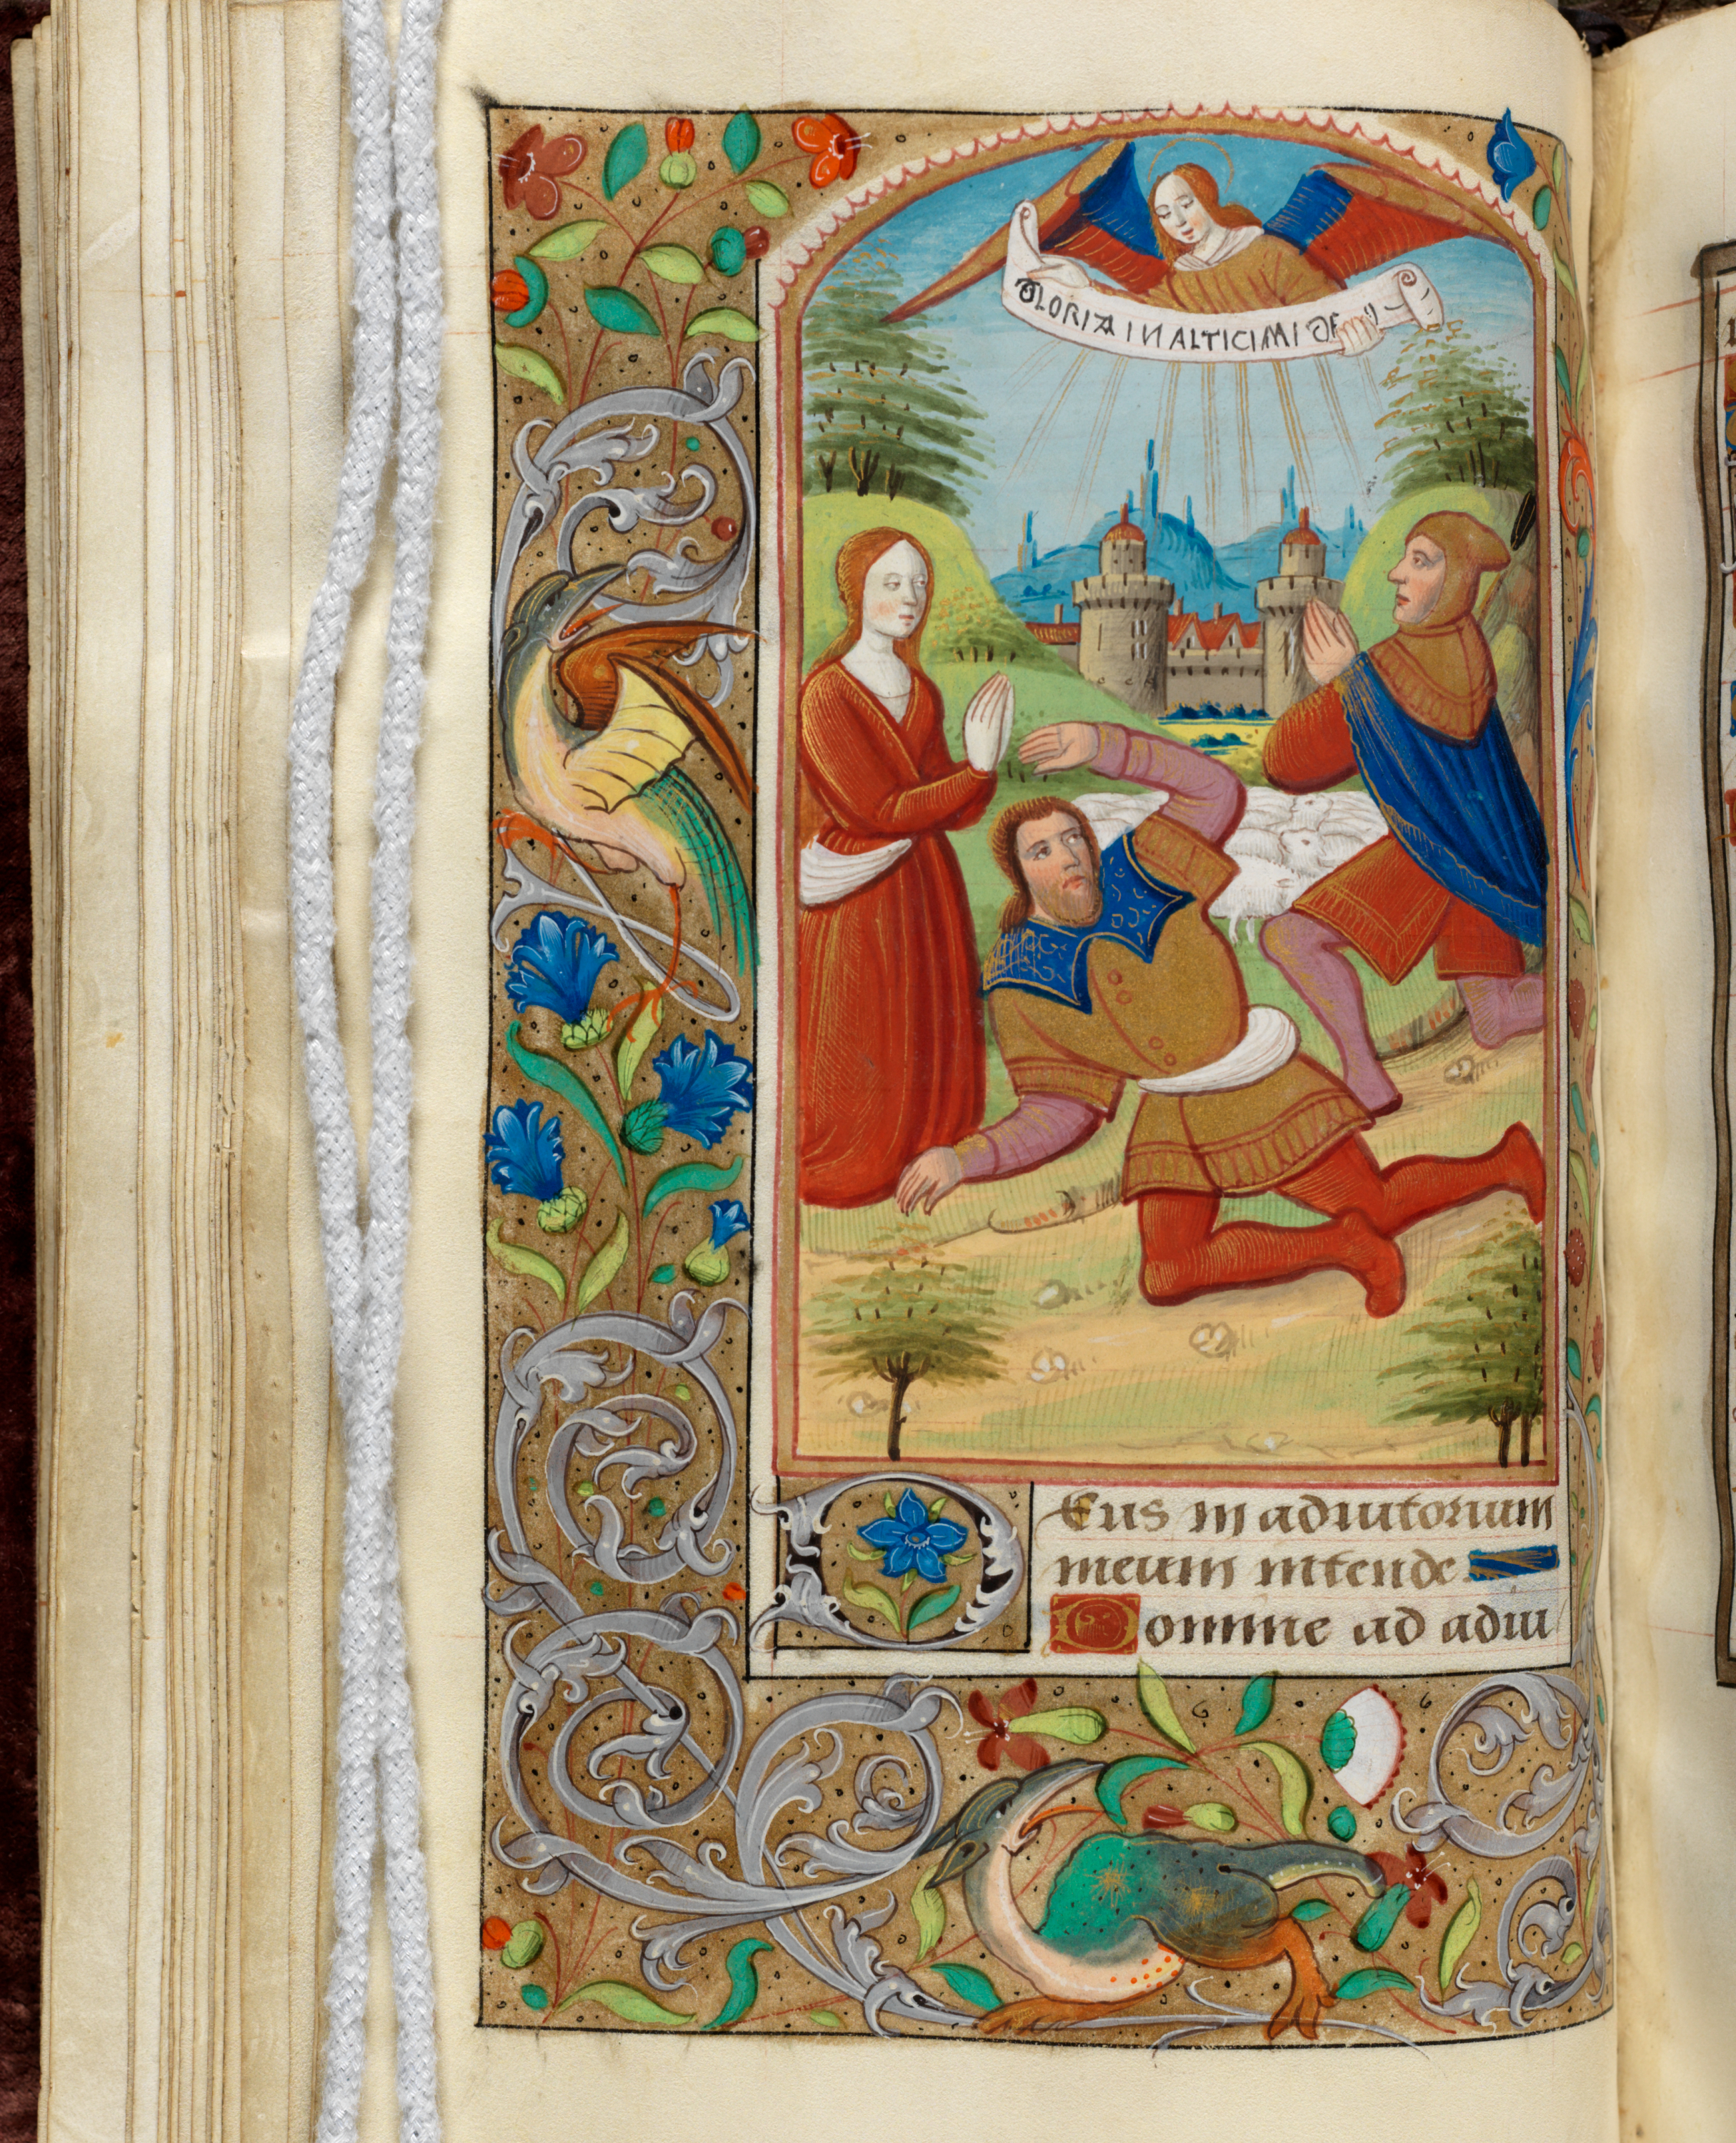 GLORIA IN ALTICIMI DE
Deus in adiutorium
meum intende
Domine ad adiu